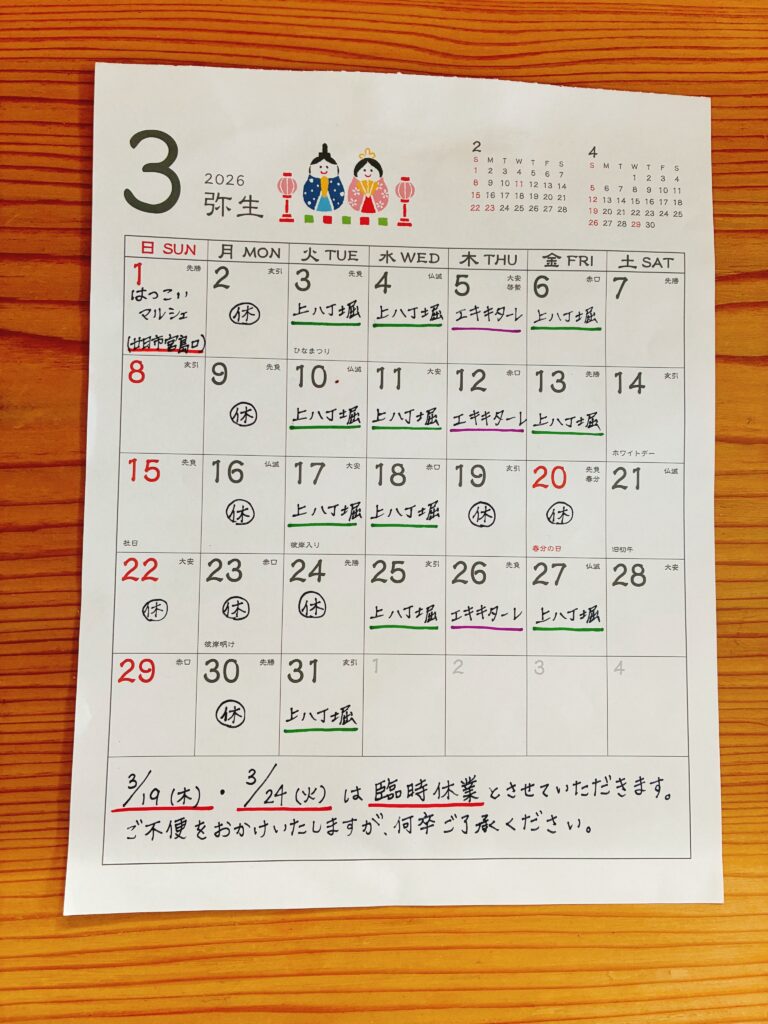 3
2026
弥生
2
S M T W T F S
1 2 3 4 5 6 7
8 9 10 11 12 13 14
15 16 17 18 19 20 21
22 23 24 25 26 27 28
4
S M T W T F S
1 2 3 4
5 6 7 8 9 10 11
12 13 14 15 16 17 18
19 20 21 22 23 24 25
26 27 28 29 30
日 SUN 月 MON 火 TUE 水 WED 木 THU 金 FRI 土 SAT
1 先勝 2 友引 3 先負 4 仏滅 5 大安 啓蟄 6 赤口 7 先勝
はっこい マルシェ (廿日市宮島口) 休 上八丁堀 上八丁堀 エキキターレ 上八丁堀
ひなまつり
8 9 先負 10 仏滅 11 大安 12 赤口 13 先勝 14 友引
休 上八丁堀 上八丁堀 エキキターレ 上八丁堀
ホワイトデー
15 先負 16 仏滅 17 大安 18 赤口 19 友引 20 先負 春分 21 仏滅
休 上八丁堀 上八丁堀 休 休
社日 彼岸入り 春分の日 旧初午
22 大安 23 赤口 24 先勝 25 友引 26 先負 27 仏滅 28 大安
休 休 休 上八丁堀 エキキターレ 上八丁堀
彼岸明け
29 赤口 30 先勝 31 友引 1 2 3 4
休 上八丁堀
3/19(木)・3/24(火)は臨時休業とさせていただきます。
ご不便をおかけいたしますが、何卒ご了承ください。